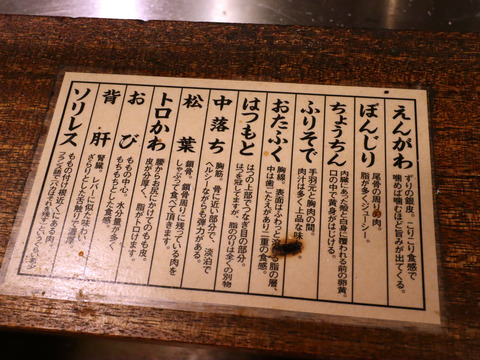 えんがわ
ずりの銀皮。こりこり食感で
噛めば噛むほど旨みが出てくる。
ぼんじり
尾骨の周りの肉。
脂が多くジューシー。
ちょうちん
内臓にあった殻と白身に覆われる前の卵黄。
口の中で黄身がはじける。
ふりそで
手羽元と胸肉の間。
肉汁は多く上品な味
おたふく
胸線。表面はふわっと 脂の層、
中は歯ごたえがあり二重の食感。
はつもと
はつの上部でつなぎ目の部分。
はつ紐としますが、脂ののりは全くの別物
中落ち
胸筋。骨に近い部分で、淡泊で
ヘルシーながらも弾力がある。
松葉
鎖骨。鎖骨周りに残っている肉を
しゃぶって食べて頂きます。
トロかわ
腰からお尻にかけてのもも皮。
皮が分厚く、脂がトロけます。
おび
ももの中で、水分量が多く
もちもちとした食感。
背肝
腎臓。レバーに似た味わい。
ざらりとした舌触りで濃厚。
ソリレス
ももの付け根近くにある肉。